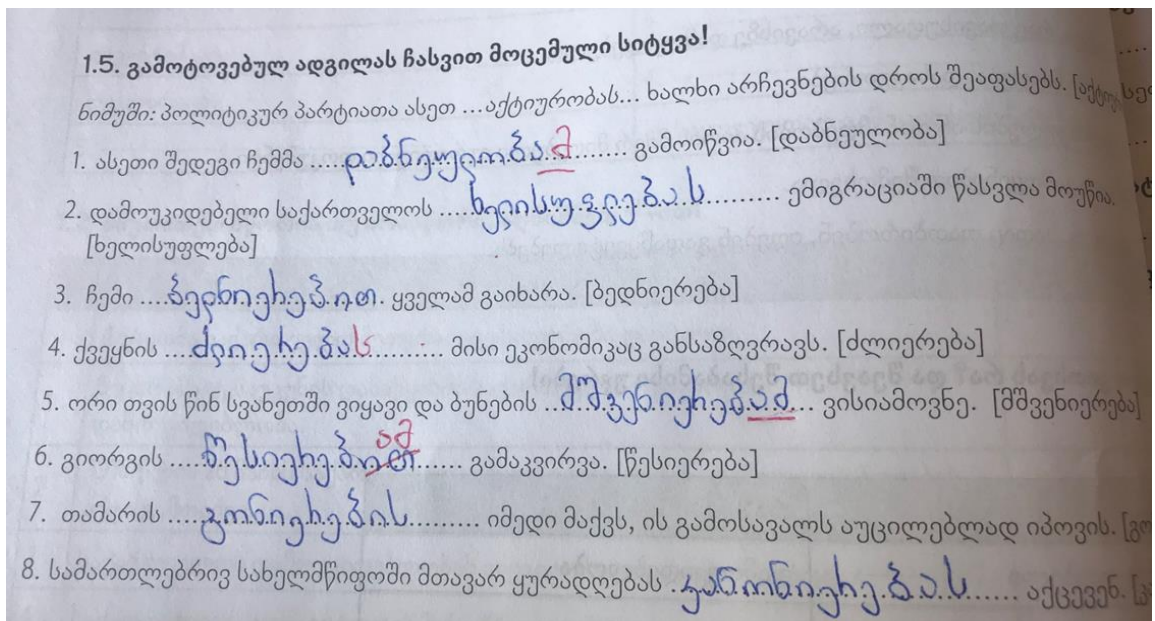 1.5. გამოტოვებულ ადგილას ჩასვით მოცემული სიტყვა!
ნიმუში: პოლიტიკურ პარტიათა ასეთ ...აქტიურობას... ხალხი არჩევნების დროს შეაფასებს.
1. ასეთი შედეგი ჩემმა ......დაბნეულობამ........ გამოიწვია. [დაბნეულობა]
2. დამოუკიდებელი საქართველოს ....ხელისუფლებას......... ემიგრაციაში წასვლა მოუწია.
[ხელისუფლება]
3. ჩემი ....ბედნიერებით. ყველამ გაიხარა. [ბედნიერება]
4. ქვეყნის ...ძლიერებას......... მისი ეკონომიკაც განსაზღვრავს. [ძლიერება]
5. ორი თვის წინ სვანეთში ვიყავი და ბუნების ..მშვენიერებამ... ვისიამოვნე. [მშვენიერება]
6. გიორგის ....წესიერებამ...... გამაკვირვა. [წესიერება]
7. თამარის ....გონიერების......... იმედი მაქვს, ის გამოსავალს აუცილებლად იპოვის.
8. სამართლებრივ სახელმწიფოში მთავარ ყურადღებას ..კანონიერებას...... აქცევენ.